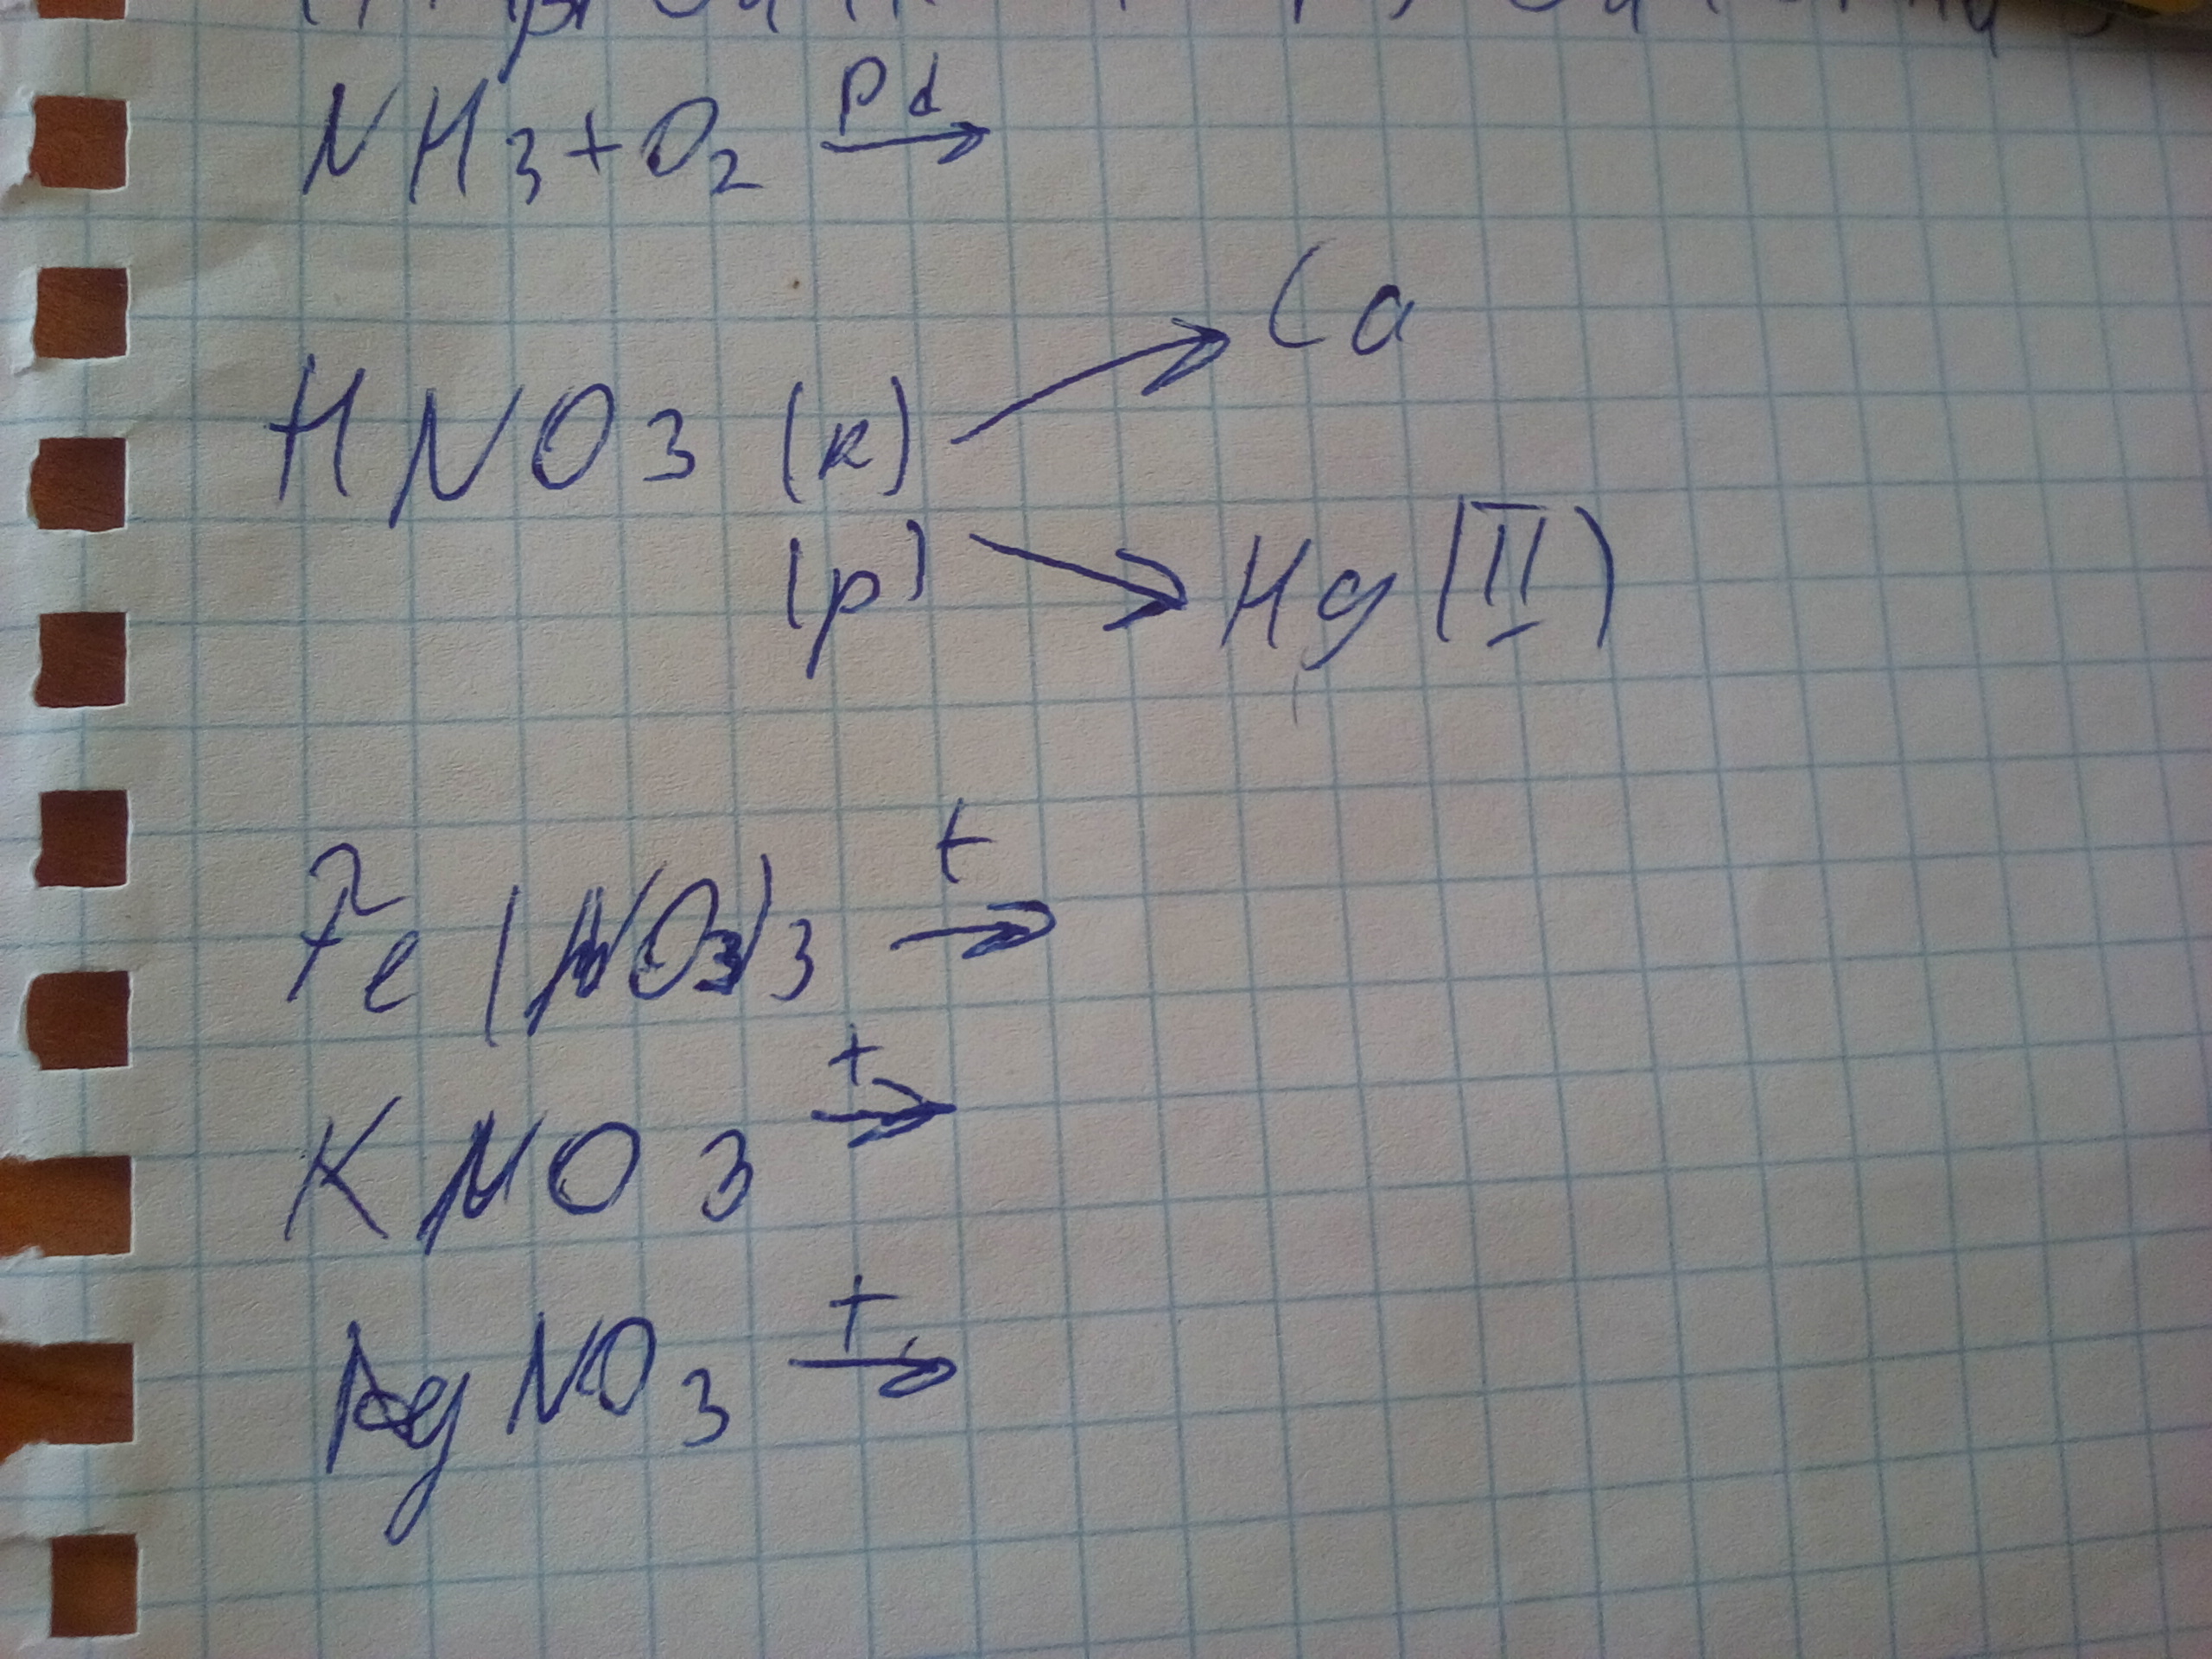 NH3+O2 Pd→
HNO3 (к) → Ca
(р) → Hg (II)
Fe(NO3)3 t→
KNO3 t→
AgNO3 t→